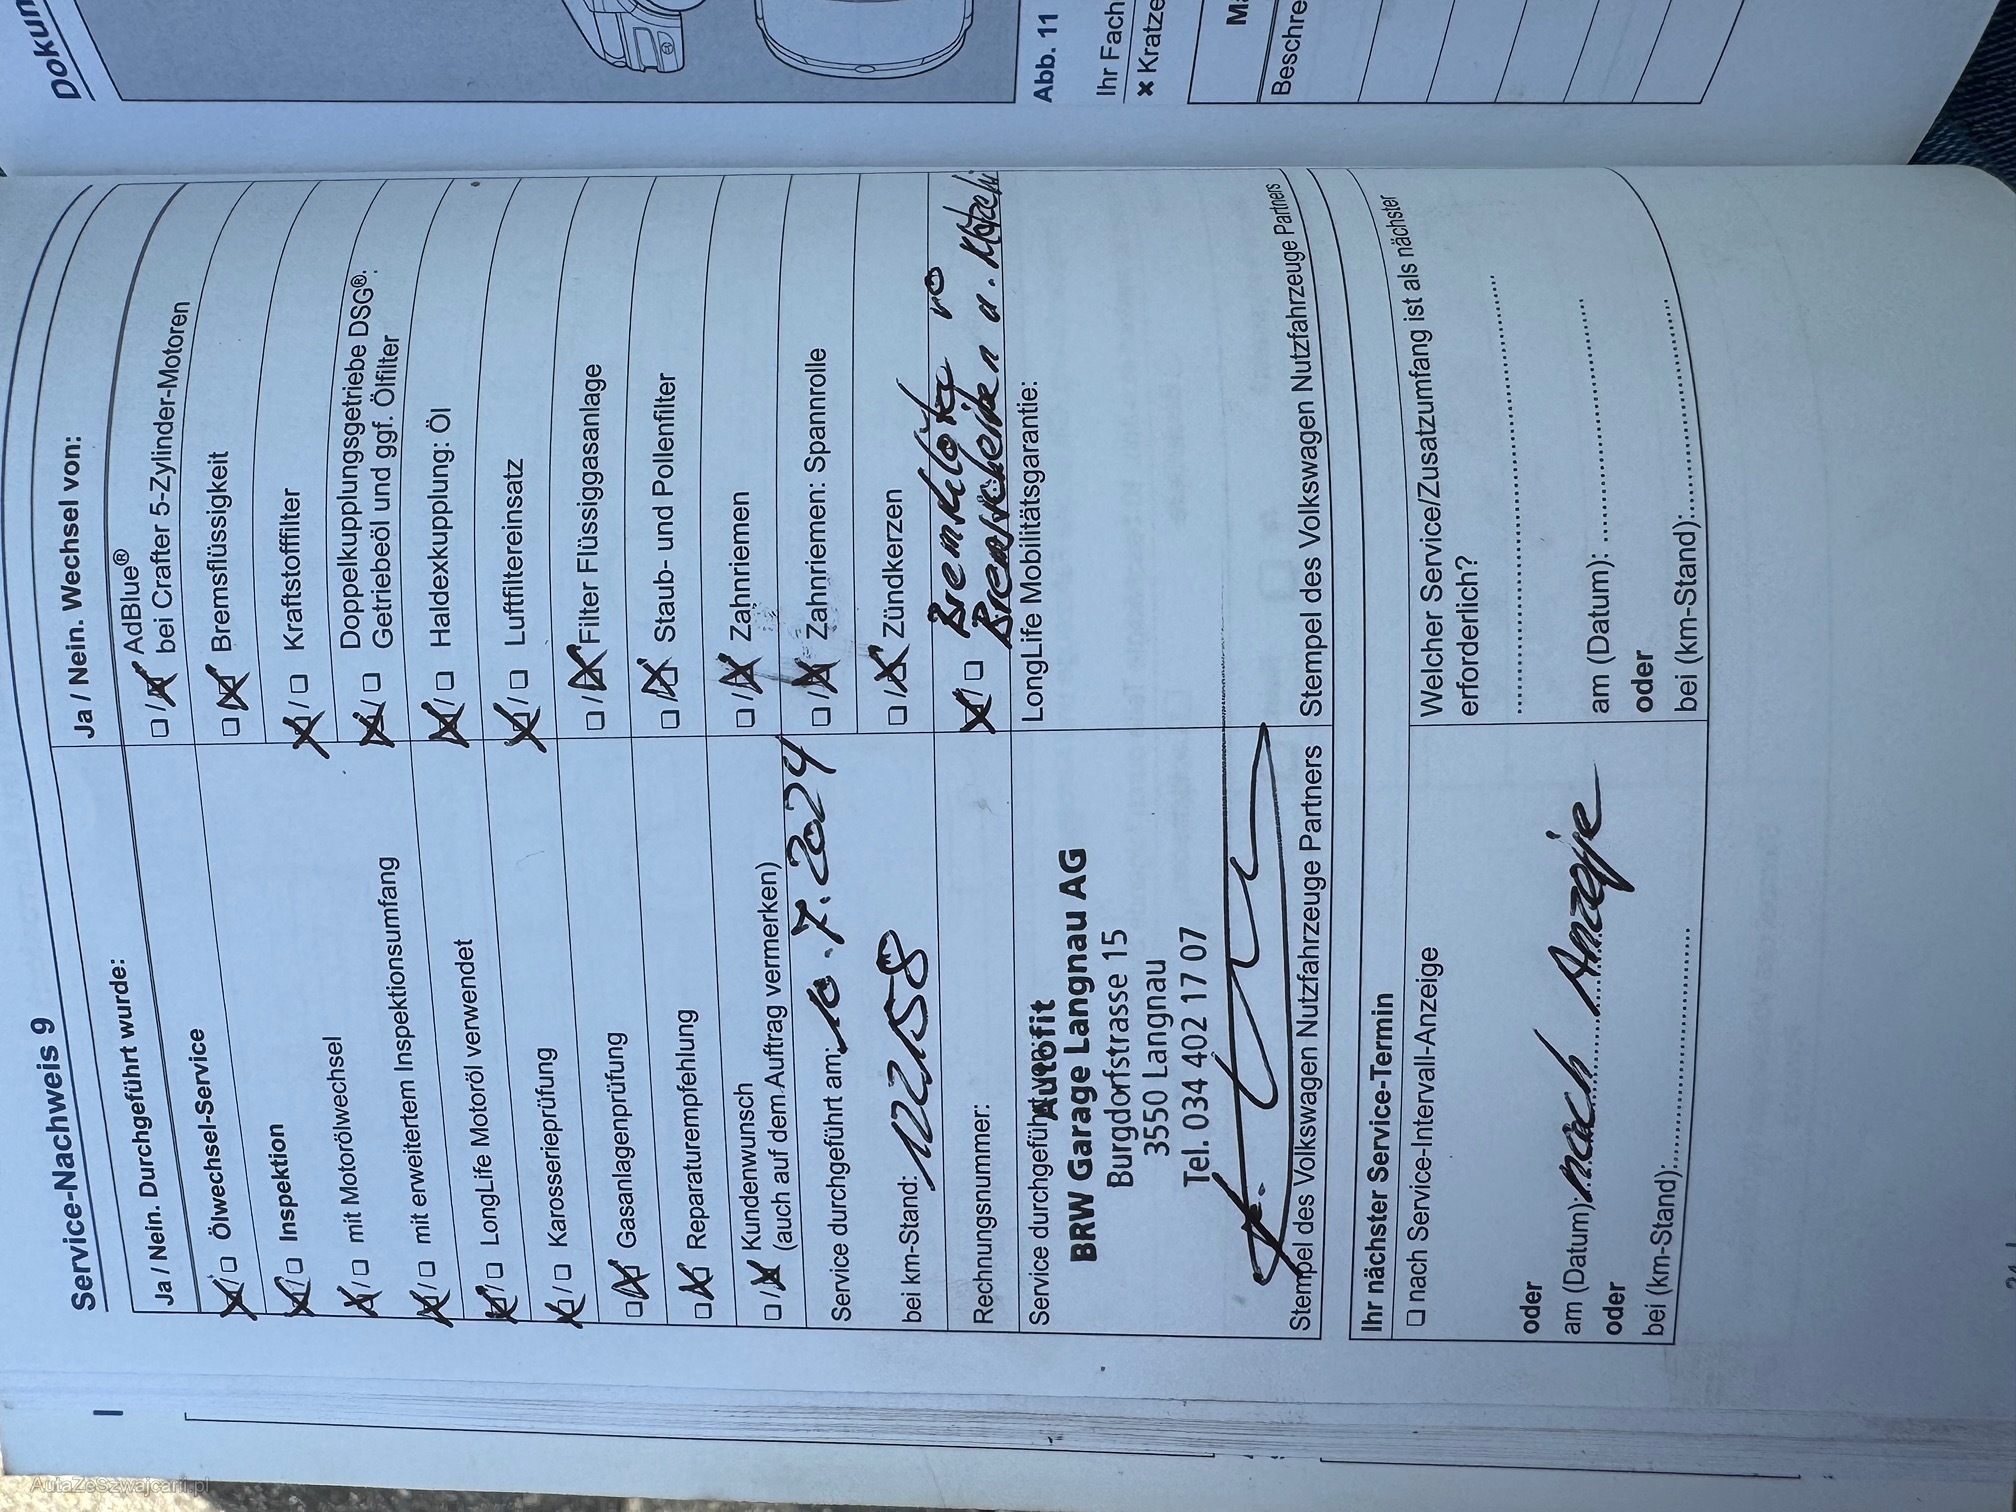 Service-Nachweis 9
Ja / Nein. Durchgeführt wurde:
Ölwechsel-Service
Inspektion
mit Motorölwechsel
mit erweitertem Inspektionsumfang
LongLife Motoröl verwendet
Karosserieprüfung
Gasanlagenprüfung
Reparaturempfehlung
Kundenwunsch
(auch auf dem Auftrag vermerken)
Service durchgeführt am: 10.7.2024
bei km-Stand: 122158
Rechnungsnummer:
Service durchgeführt von:
Autofit
BRW Garage Langnau AG
Burgdorfstrasse 15
3550 Langnau
Tel. 034 402 17 07
Stempel des Volkswagen Nutzfahrzeuge Partners
Ja / Nein. Wechsel von:
AdBlue®
bei Crafter 5-Zylinder-Motoren
Bremsflüssigkeit
Kraftstofffilter
Doppelkupplungsgetriebe DSG®:
Getriebeöl und ggf. Ölfilter
Haldexkupplung: Öl
Luftfiltereinsatz
Filter Flüssiggasanlage
Staub- und Pollenfilter
Zahnriemen
Zahnriemen: Spannrolle
Zündkerzen
Bremsklötze
Bremsscheiben u.
LongLife Mobilitätsgarantie:
Stempel des Volkswagen Nutzfahrzeuge Partners
Ihr nächster Service-Termin
nach Service-Intervall-Anzeige
oder
am (Datum): nach Anzeige
oder
bei (km-Stand):
Welcher Service/Zusatzumfang ist als nächster
erforderlich?
am (Datum):
oder
bei (km-Stand):
Abb. 11
Ihr Fach
✖ Kratze
Beschre
AutaZeSzwajcarii.pl